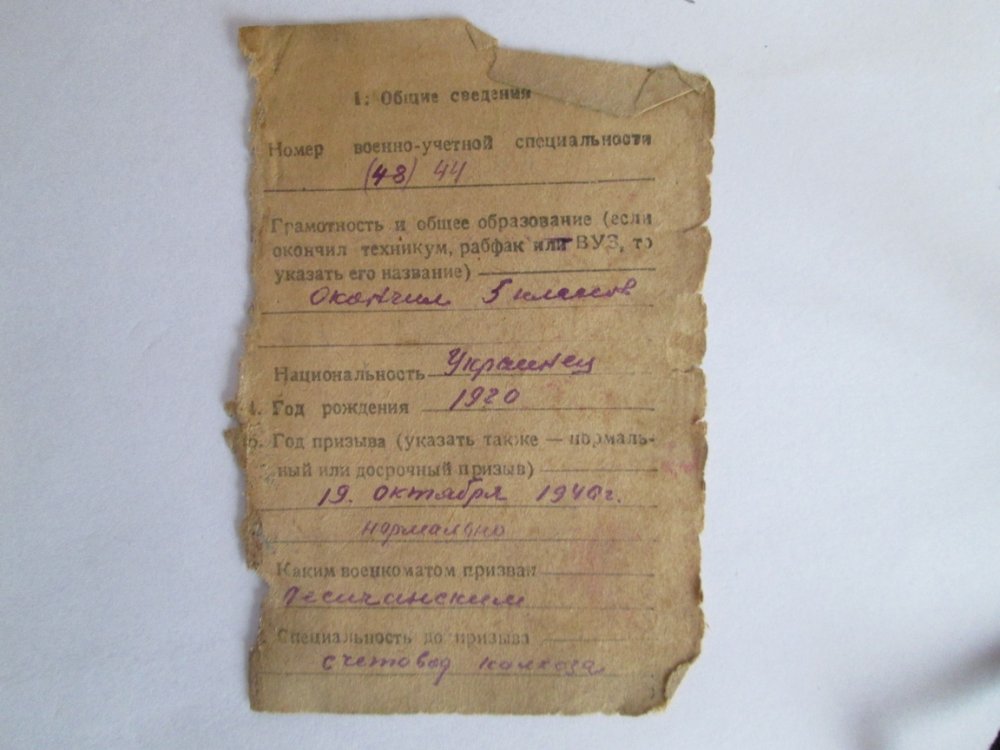 1. Общие сведения
Номер военно-учетной специальности
(48) 44
Грамотность и общее образование (если
окончил техникум, рабфак или ВУЗ, то
указать его название)
Окончил 5 классов
Национальность Украинец
4. Год рождения 1920
5. Год призыва (указать также — нормаль-
ный или досрочный призыв)
19. октября 1940 г.
нормально
Каким военкоматом призван
Песчанским
Специальность до призыва
счетовод колхоза